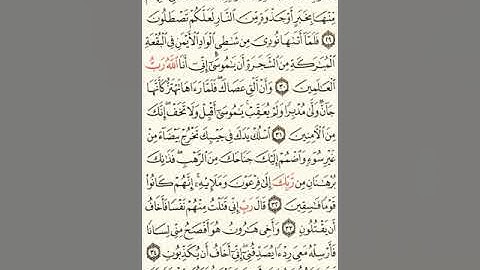 مِّنْهَا بِخَبَرٍ أَوْ جَذْوَةٍ مِّنَ ٱلنَّارِ لَعَلَّكُمْ تَصْطَلُونَ
٢٩ فَلَمَّآ أَتَىٰهَا نُودِىَ مِن شَٰطِئِ ٱلْوَادِ ٱلْأَيْمَنِ فِى ٱلْبُقْعَةِ
ٱلْمُبَٰرَكَةِ مِنَ ٱلشَّجَرَةِ أَن يَٰمُوسَىٰٓ إِنِّىٓ أَنَا ٱللَّهُ رَبُّ
ٱلْعَٰلَمِينَ ٣٠ وَأَنْ أَلْقِ عَصَاكَ ۖ فَلَمَّا رَءَاهَا تَهْتَزُّ كَأَنَّهَا
جَآنٌّ وَلَّىٰ مُدْبِرًا وَلَمْ يُعَقِّبْ ۚ يَٰمُوسَىٰٓ أَقْبِلْ وَلَا تَخَفْ ۖ إِنَّكَ
مِنَ ٱلْءَامِنِينَ ٣١ ٱسْلُكْ يَدَكَ فِى جَيْبِكَ تَخْرُجْ بَيْضَآءَ مِنْ
غَيْرِ سُوٓءٍ وَٱضْمُمْ إِلَيْكَ جَنَاحَكَ مِنَ ٱلرَّهْبِ ۖ فَذَٰنِكَ
بُرْهَٰنَانِ مِن رَّبِّكَ إِلَىٰ فِرْعَوْنَ وَمَلَإِي۟هِۦٓ ۚ إِنَّهُمْ كَانُوا۟
قَوْمًا فَٰسِقِينَ ٣٢ قَالَ رَبِّ إِنِّى قَتَلْتُ مِنْهُمْ نَفْسًا فَأَخَافُ
أَن يَقْتُلُونِ ٣٣ وَأَخِى هَٰرُونُ هُوَ أَفْصَحُ مِنِّى لِسَانًا
فَأَرْسِلْهُ مَعِىَ رِدْءًا يُصَدِّقُنِىٓ ۖ إِنِّىٓ أَخَافُ أَن يُكَذِّبُونِ ٣٤